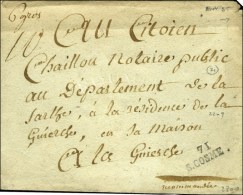 Au Citoien
Chaillou Notaire public
au Département de la
Sarthe, à la résidence de la
Guierche, en sa maison
A la Guierche
71
S.COSME.